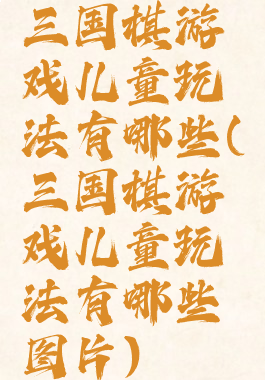 三国棋游
戏儿童玩
法有哪些(
三国棋游
戏儿童玩
法有哪些
图片)